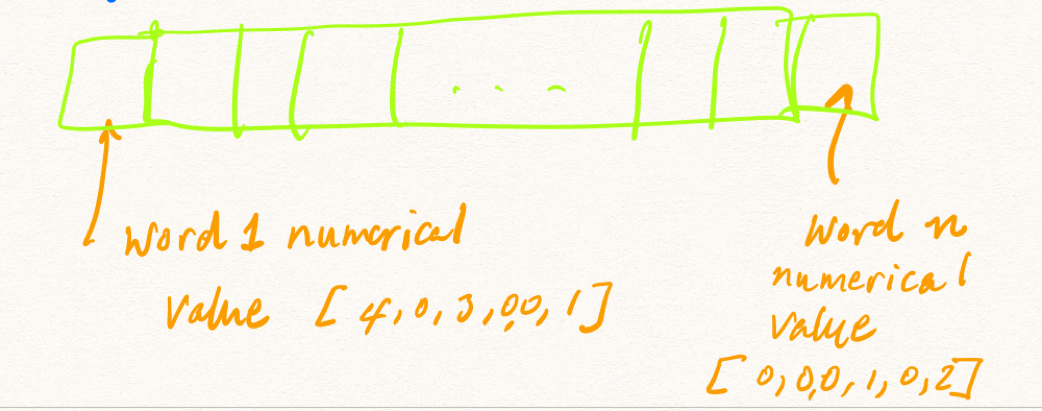 word 1 numerical
value [4,0,3,0,0,1]
word n
numerical
value
[0,0,0,1,0,2]